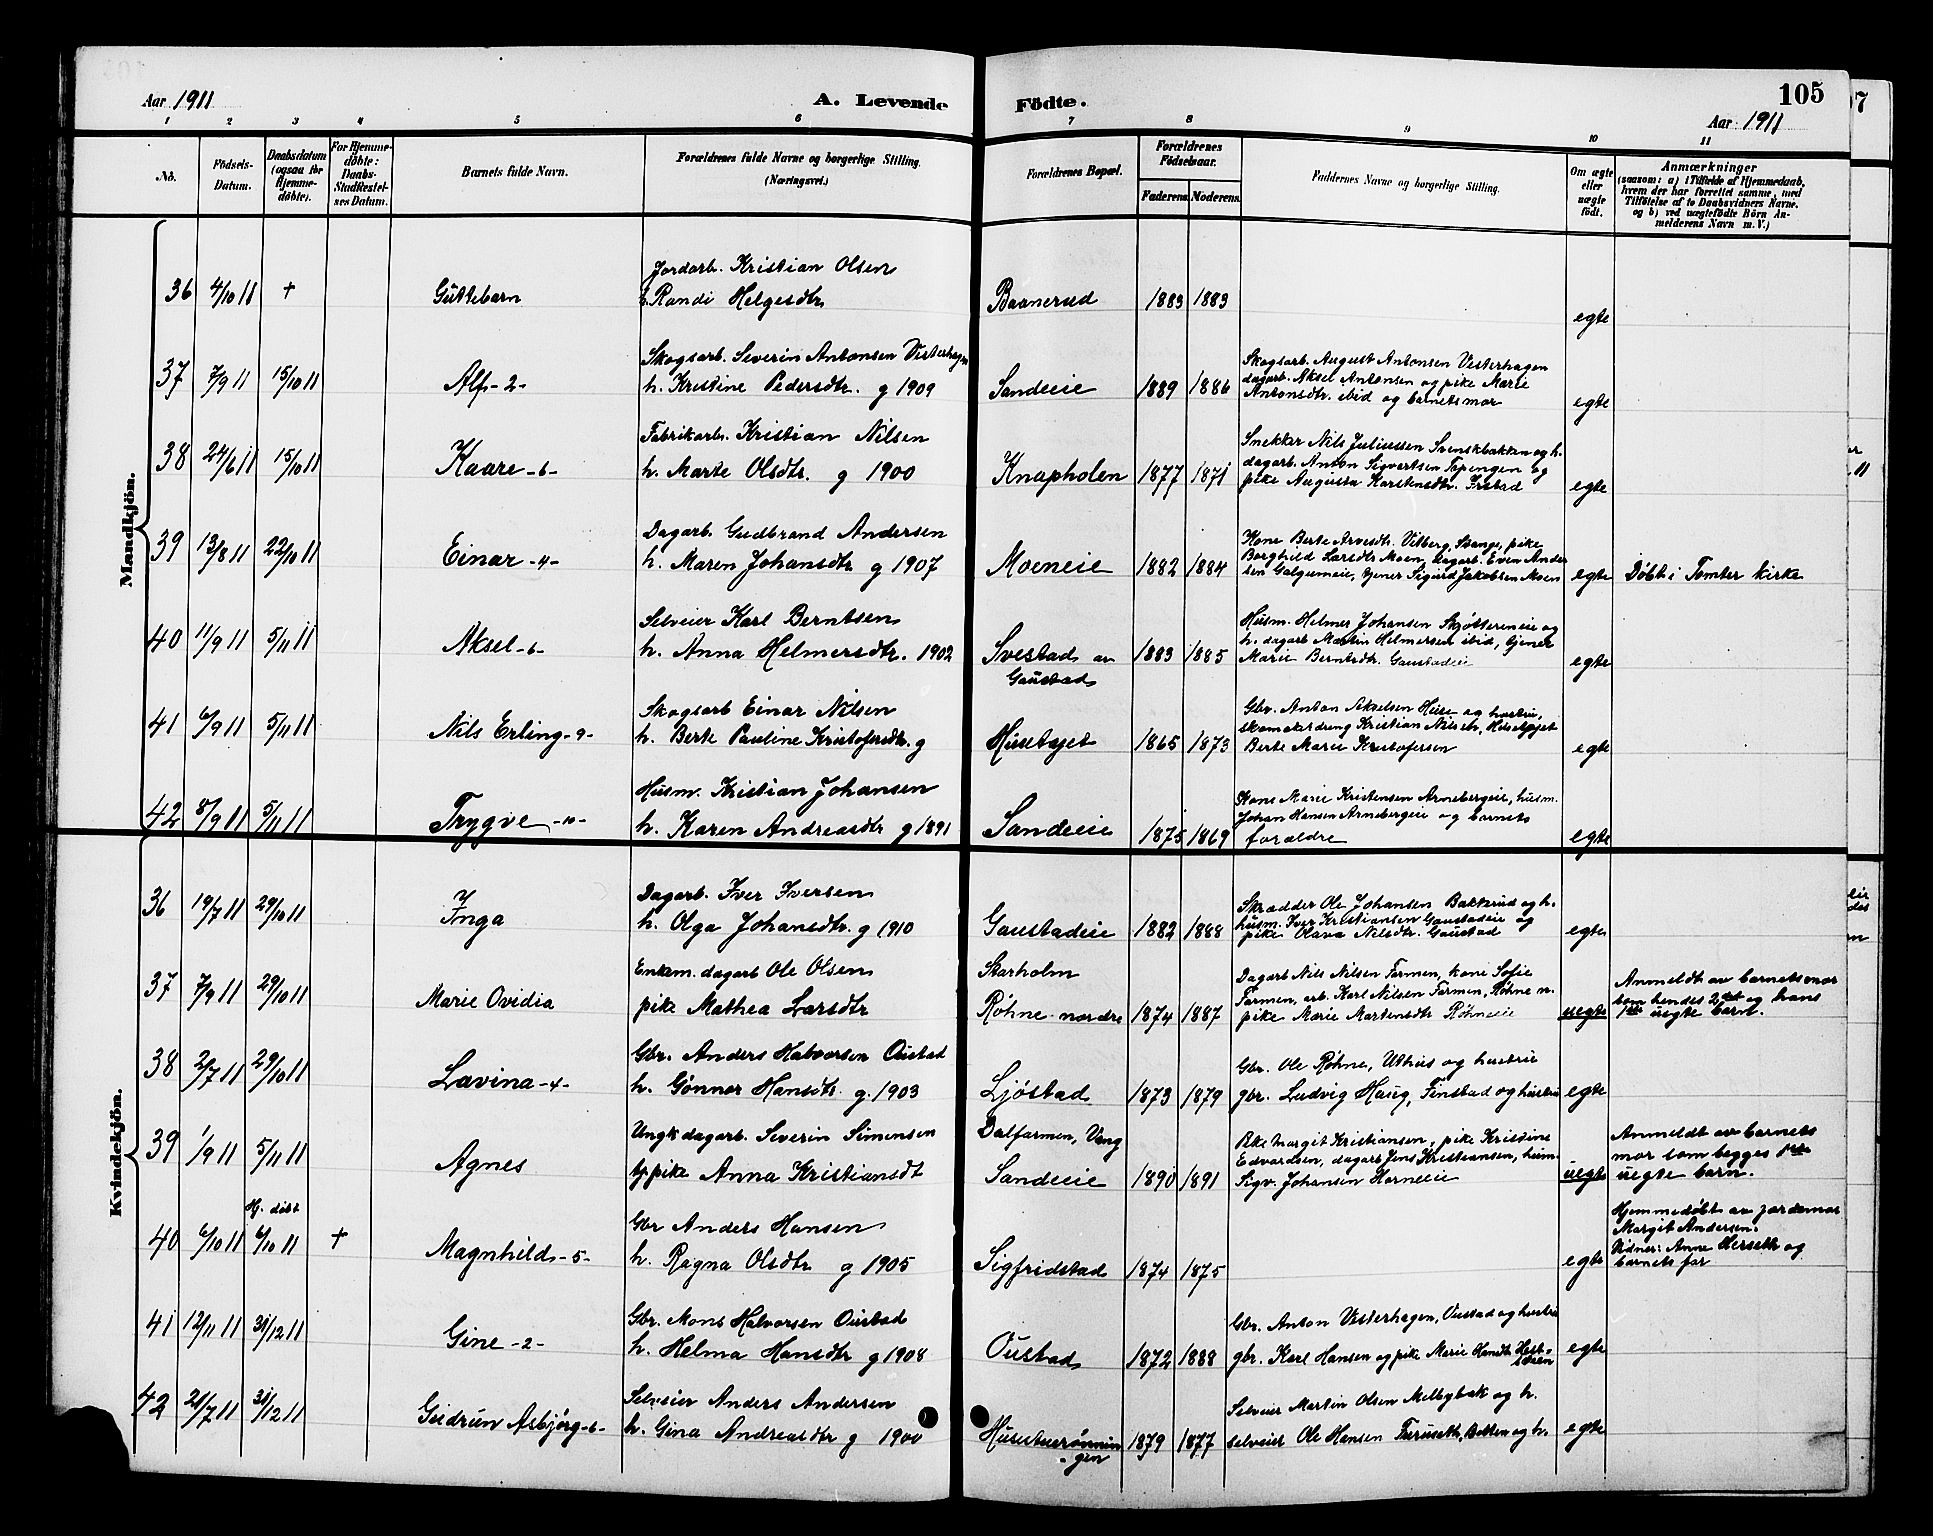 Aar 1911
A. Levende Födte.
105
Aar 1911
1 2 3 4 5 6 7 8 9 10 11
No.
Födsels-
Datum.
Daabsdatum
(ogsaa for
Hjemme-
döbte).
For Hjemme-
döbte:
Daabs-
Stadfæstel-
ses Datum.
Barnets fulde Navn.
Forældrenes fulde Navne og borgerlige Stilling.
(Næringsvei.)
Forældrenes Bopæl.
Forældrenes
Födselsaar.
Faderens. Moderens.
Faddernes Navne og borgerlige Stilling.
Om ægte
eller
uægte
födt.
Anmærkninger
(saasom: a) i Tilfælde af Hjemmedaab,
hvem der har forrettet samme, med
Tilföielse af to Daabsvidners Navne,
og b) ved uægtefödte Börn An-
melderens Navn m. V.)
Mandkjön.
36 4/10 11 + Guttebarn
Jordarb. Kristian Olsen
h. Randi Helgesdtr
Baanerud 1883 1883 egte
37 7/9 11 15/10 11 Alf -2-
Skogsarb. Severin Antonsen Vesterhagen
h. Kristine Pedersdtr. g 1909
Sandeeie 1889 1886
Skogsarb. August Antonsen Vesterhagen
dagarb. Aksel Antonsen og pike Marie
Antonsdtr. ibid og barnets mor
egte
38 24/6 11 15/10 11 Kaare -6-
Fabrikarb. Kristian Nilsen
h. Marte Olsdtr. g 1900
Knapholen 1877 1871
Snekker Nils Juliussen Svenskbakken og h.
dagarb. Anton Sigvartsen Tøpengen og
pike Augusta Karstensdtr. Frstad
egte
39 13/8 11 22/10 11 Einar -4-
Dagarb. Gudbrand Andersen
h. Maren Johansdtr g 1907
Moeneie 1882 1884
Kone Berte Arvesdtr. Vilberg, Svange, pike
Borghild Larsdtr Moen, dagarb. Even Ander
sen Galgumeie, tjener Sigurd Jakobsen Moen
egte
Døbt i Tomter kirke
40 11/9 11 5/11 11 Aksel -6-
Selveier Karl Berntsen
h. Anna Helmersdtr. 1902
Svestad av
Gaustad
1883 1885
Husm. Helmer Johansen Skjøttereneie og
h. dagarb Martin Helmersen ibid, tjener
Marie Berntsdtr. Gaustadeie
egte
41 6/9 11 5/11 11 Nils Erling -9-
Skogsarb Einar Nilsen
h. Berte Pauline Kristofersdtr. g
Husetøjet 1865 1873
Gbr. Anton Akselsen Huse og hustru,
skomakerdreng Kristian Nilsen, Husetøjet
Berte Marie Kristofersen
egte
42 8/9 11 5/11 11 Trygve -10-
Husm. Kristian Johansen
h. Karen Andreasdtr g 1891
Sandeeie 1875 1869
Kone Marie Kristensen Arnebergeie, husm.
Johan Hansen Arnebergeie og barnets
forældre
egte
Kvindekjön.
36 19/7 11 29/10 11 Inga
Dagarb. Iver Iversen
h. Olga Johansdtr. g 1910
Gaustadeie 1882 1888
Skrædder Ole Johansen Bakkerud og h.
husm. Iver Kristiansen Gaustadeie og
pike Olava Nilsdtr. Gaustad
egte
37 7/9 11 29/10 11 Marie Ovidia
Enkem. dagarb Ole Olsen
pike Mathea Larsdtr
Starholm
Røhne nordre 1874 1887
Dagarb Nils Nilsen Farmen, kone Sofie
Farmen, arb. Karl Nilsen Farmen, Røhne n.
pike Marie Martensdtr Røhneeie
uegte
Anmeldt av barnets mor
som hendes 2det og hans
1ste uegte barn.
38 2/7 11 29/10 11 Lovina -4-
Gbr. Anders Halvorsen Oustad
h. Gønner Hansdtr. g. 1903
Ljøstad 1873 1879
Gbr. Ole Røhne, Uthus og hustru
gbr. Ludvig Haug, Finstad og hustru
egte
39 1/9 11 5/11 11 Agnes
Ungk dagarb. Severin Simensen
og pike Anna Kristiansdt
Dalfarmen, Vang
Sandeeie 1890 1891
Pike Margit Kristiansen, pike Kristine
Edvardsen, dagarb Jens Kristiansen, husm.
Sigv. Johansen Horneeie
uegte
Anmeldt av barnets
mor som begges 1ste
uegte barn.
40 6/10 11 Hj. døbt 6/10 11 + Magnhild -5-
Gbr Anders Hansen
h. Ragna Olsdtr g 1905
Sigfridstad 1874 1875 egte
Hjemmedøbt av jordemor
Margit Andersen.
Vidner: Anne Herseth og
barnets far
41 12/11 11 31/12 11 Gine -2-
Gbr. Mons Halvorsen Oustad
h. Helma Hansdtr g 1908
Oustad 1872 1888
Gbr. Anton Vesterhagen, Oustad og hustru
gbr. Karl Hansen og pike Marie Hansdtr
egte
42 21/7 11 31/12 11 Gudrun Asbjørg -6-
Selveier Anders Andersen
h. Gina Andreasdtr g 1900
Husetuerønnin
gen
1879 1877
Selveier Martin Olsen Melbybak og h.
selveier Ole Hansen Furuseth, Bakken og h.
egte